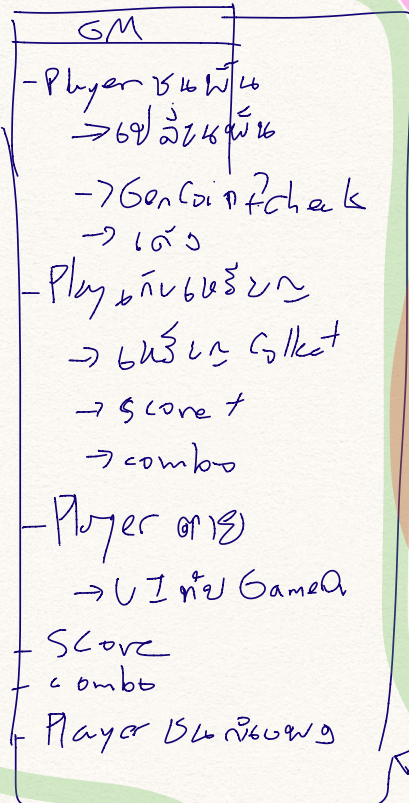 GM
- Player ชนพื้น
→ เปลี่ยนพื้น
→ GenCoin?check
→ เด้ง
- Play เก็บเหรียญ
→ เหรียญ Collect
→ score +
→ combo
- Player ตาย
→ UI
- Score
- combo
- Player ชน